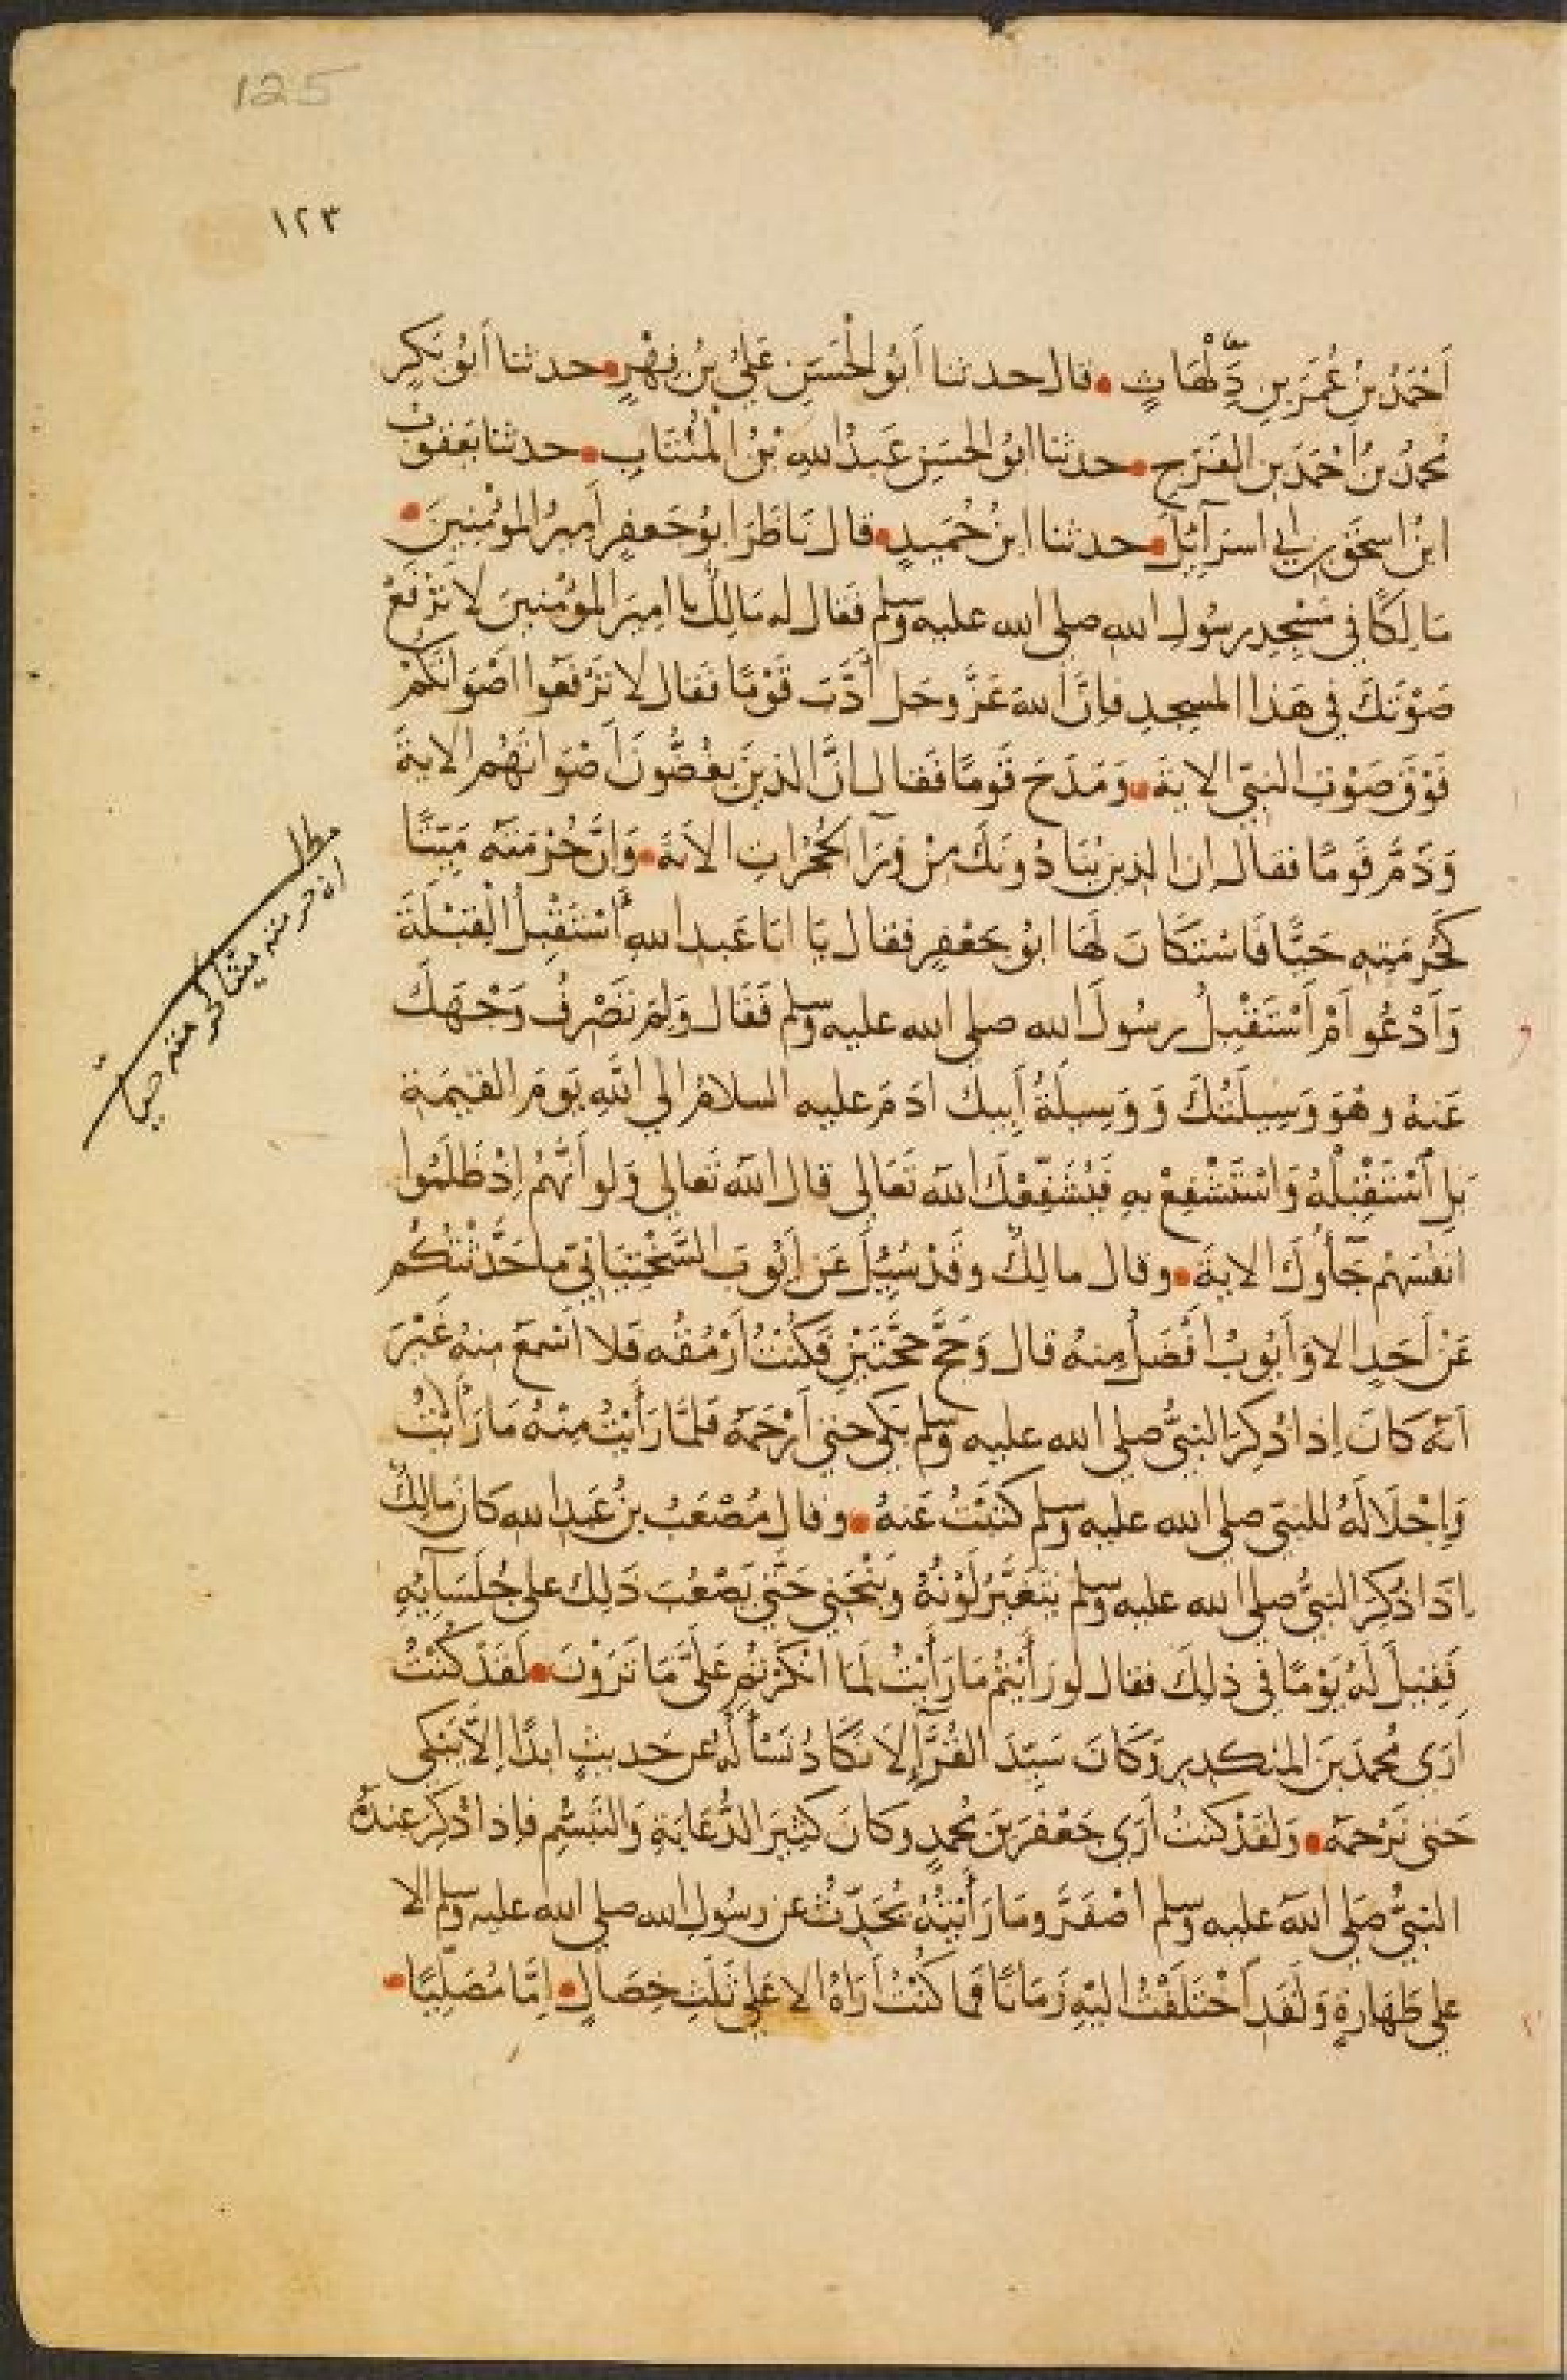 125
١٢٣
أَحْمَدُ بْنُ عُمَرَ بنِ دِلْهَاثٍ • قال حدثنا أَبُو الْحَسَنِ عَلِيُّ بْنُ فِهْرٍ • حدثنا أَبُو بَكْرٍ
مُحمدُ بنُ أَحْمَدَ بنِ الفَرَجِ • حدثنا ابُو الحَسَنِ عَبْدُ اللهِ بْنُ الْمُنْتَابِ • حدثنا يَعْقُوبُ
ابْنُ اسحٰقَ بنِ ابي اسرَآئِيلَ • حدثنا ابنُ حُمَيدٍ • قال نَاظَرَ ابوُ جَعفرٍ أَمِيرُ المؤْمِنِينَ •
مَالِكًا في مَسْجِدِ رسُولِ اللهِ صلى الله عليه وسلم فَقَال له مَالِكٌ يا اميرَ المؤمنينَ لا تَرْفَعْ
صَوْتَكَ في هَذا المسجِدِ فإِنَّ اللهَ عَزَّ وجَل أَدَّبَ قَوْمًا فقال لا تَرْفَعوا اصْوَاتَكُمْ
فَوْقَ صَوْتِ النبيِّ الاية • وَمَدَحَ قَومًا فَقال انَّ الذينَ يَغُضُّونَ أَصْوَاتَهُم الايةَ
وَذَمَّ قَومًا فقال ان الذين يُنَادُونَكَ مِنْ وَرَآ الحُجُراتِ الآيةَ • وَإِنَّ حُرْمَتَهُ مَيِّتًا
كَحُرْمَتِهِ حَيًّا فَاسْتَكَانَ لَهَا ابوُ جَعْفرٍ فقال يَا ابَا عَبدِ اللهِ أَسْتَقْبِلُ الْقِبْلَةَ
وَأَدْعُوا أَمْ أَسْتَقْبِلُ رسُولَ الله صلى الله عليه وسلم فَقَال وَلِمَ تَصْرِفُ وَجْهَكَ
عَنهُ وهُوَ وَسِيلَتُكَ وَوَسِيلَةُ أَبِيكَ ادَمَ عليه السلامُ الي اللهِ يَومَ القِيٰمَةِ
بَلِ اسْتَقْبِلْهُ وَاسْتَشْفِعْ بِهِ فَيُشَفِّعَكَ اللهُ تَعَالى قال اللهُ تَعالي وَلو أَنَّهُمْ اِذْ ظَلَمُوا
انفُسَهُم جَآؤُكَ الايةَ • وقال مالِكٌ وقَدْ سُئِلَ عَنْ أَيُّوبَ السَّخْتِيَانيِّ ما حَدَّثْتُكُم
عَنْ أَحَدٍ الا وَأَيُوبُ أَفْضَلُ مِنهُ قال وَحَجَّ حَجَّتَيْنِ فَكُنْتُ أَرْمُقُه فَلا أَسْمَعُ منهُ غَيْرَ
أَنّهُ كَانَ اِذا ذُكِرَ النبيُّ صلي الله عليه وسلم بَكي حتى أَرْحَمَهُ فَلمَّا رَأَيْتُ مِنْهُ مَا رَأَيْتُ
وَاِجْلَالَهُ للنبيّ صلي الله عليه وسلم كَتَبْتُ عَنهُ • وقال مُصْعَبُ بنُ عَبدِ الله كانَ مالِكٌ
اِذَا ذُكِرَ النبيُّ صلي الله عليه وسلم يَتَغَيَّرُ لَوْنُهُ ويَنْحَنِي حَتَّي يَصْعُبَ ذَلِكَ علي جُلَسَآئِهِ
فَقِيلَ لَهُ يَوْمًا في ذلِكَ فقال لو رَأَيتُم مَا رَأَيْتُ لَمَا انْكَرْتُم عَلَيَّ مَا تَرَوْنَ • لَقَدْ كُنْتُ
أَرَي مُحمدَ بنَ المنكَدِرِ وَكَانَ سَيِّدَ القُرَّآءِ لا نَكَادُ نَسْأَلُهُ عن حَديثٍ ابدًا اِلاَّ يَبْكِي
حَتى نَرْحمَهُ • وَلقَدْ كنتُ أَرَي جَعْفَرَ بنَ مُحمدٍ وكانَ كَثيرَ الدُّعَابَةِ وَالتَّبَسُّمِ فإِذا ذُكِرَ عندهُ
النبيُّ صَلي اللهُ عليه وسلم اصْفَرَّ ومَا رَأَيْتُهُ يُحَدِّثُ عن رسُولِ الله صلي الله عليه وسلم الا
علي طَهَارةٍ وَلَقَدِ اخْتَلَفْتُ اليْهِ زَمَانًا فَما كُنْتُ أَرَاهُ الا عَلي ثَلٰثِ خِصَالٍ • اِمَّا مُصَلِّيًا •
مطلب
ان حرمته ميتا كحرمته حيا